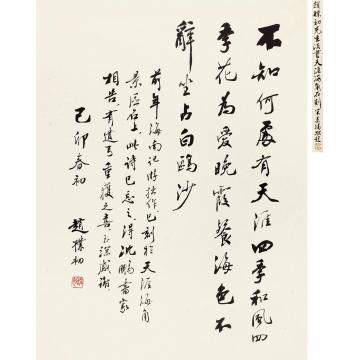 趙樸初先生法書天涯海角石刻
不知何處有天涯四季和風四
季花為愛晚霞餐海色不
辭坐占白鷗沙
前年海南記游拙作已刻於天涯海角
景區石上此詩已忘之得沈鵬書家
相告有遺弓重獲之喜至深感謝
己卯春初 趙樸初